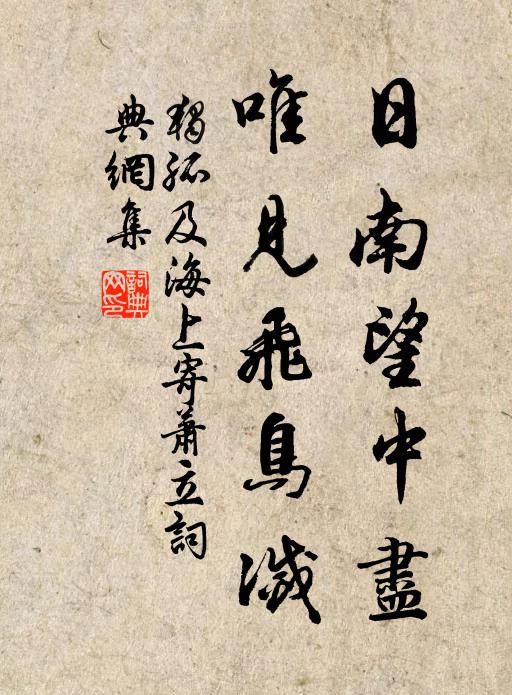 日南望中盡
唯見飛鳥滅
獨孤及海上寄蕭立詞
典網集
詞典
網印